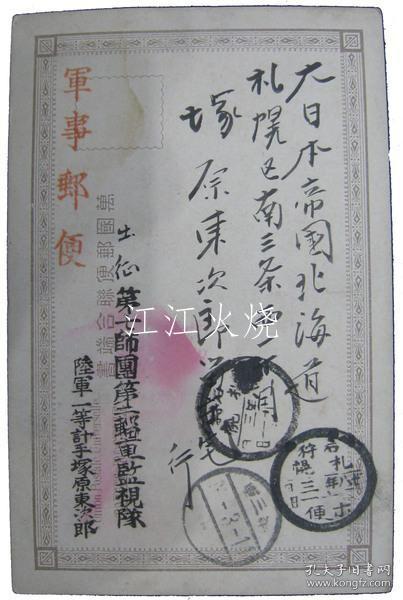 大日本帝国北海道
札幌区南三条
塚原東次郎
行
軍事郵便
萬國郵便聯合端書
出征第一師團第二輜重監視隊
陸軍一等計手塚原東次郎
江江火烧
孔夫子旧书网
www.kongfz.com